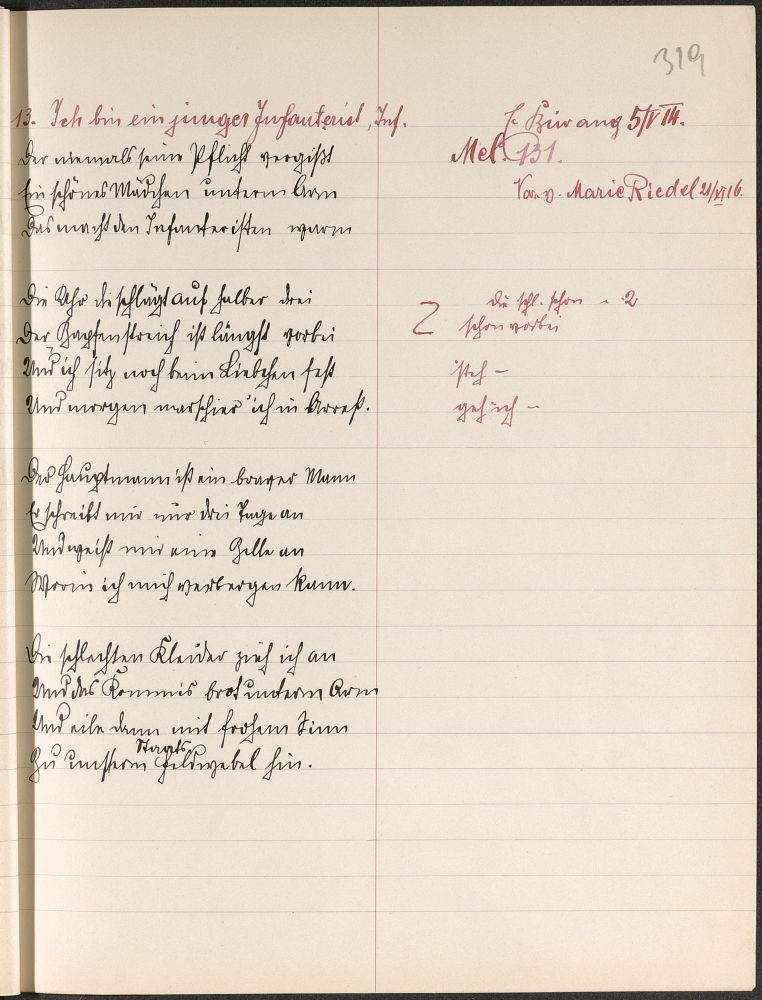 319
13. Ich bin ein junger Infanterist, Inf.
Der niemals seine Pflicht vergißt
Ein schönes Mädchen unterm Arm
Das macht den Infanteristen warm
Die Uhr die schlägt auf halber drei
Der Zapfenstreich ist längst vorbei
Und ich sitz noch beim Liebchen fest
Und morgen marschier ich in Arrest.
Der Hauptmann ist ein braver Mann
Er schreibt mir nur drei Tage an
Und weist mir eine Zelle an
Worin ich mich verbergen kann.
Die schlechten Kleider zieh ich an
Und das Kommis brot unterm Arm
Und eile dann mit frohem Sinn
Staats
Zu unserm Feldwebel hin.
5/V 14.
Mel. 131.
Var. v. Marie Riedel 21/XI 16.
2 die schl. schon 2
schon vorbei
steh –
geh ich –